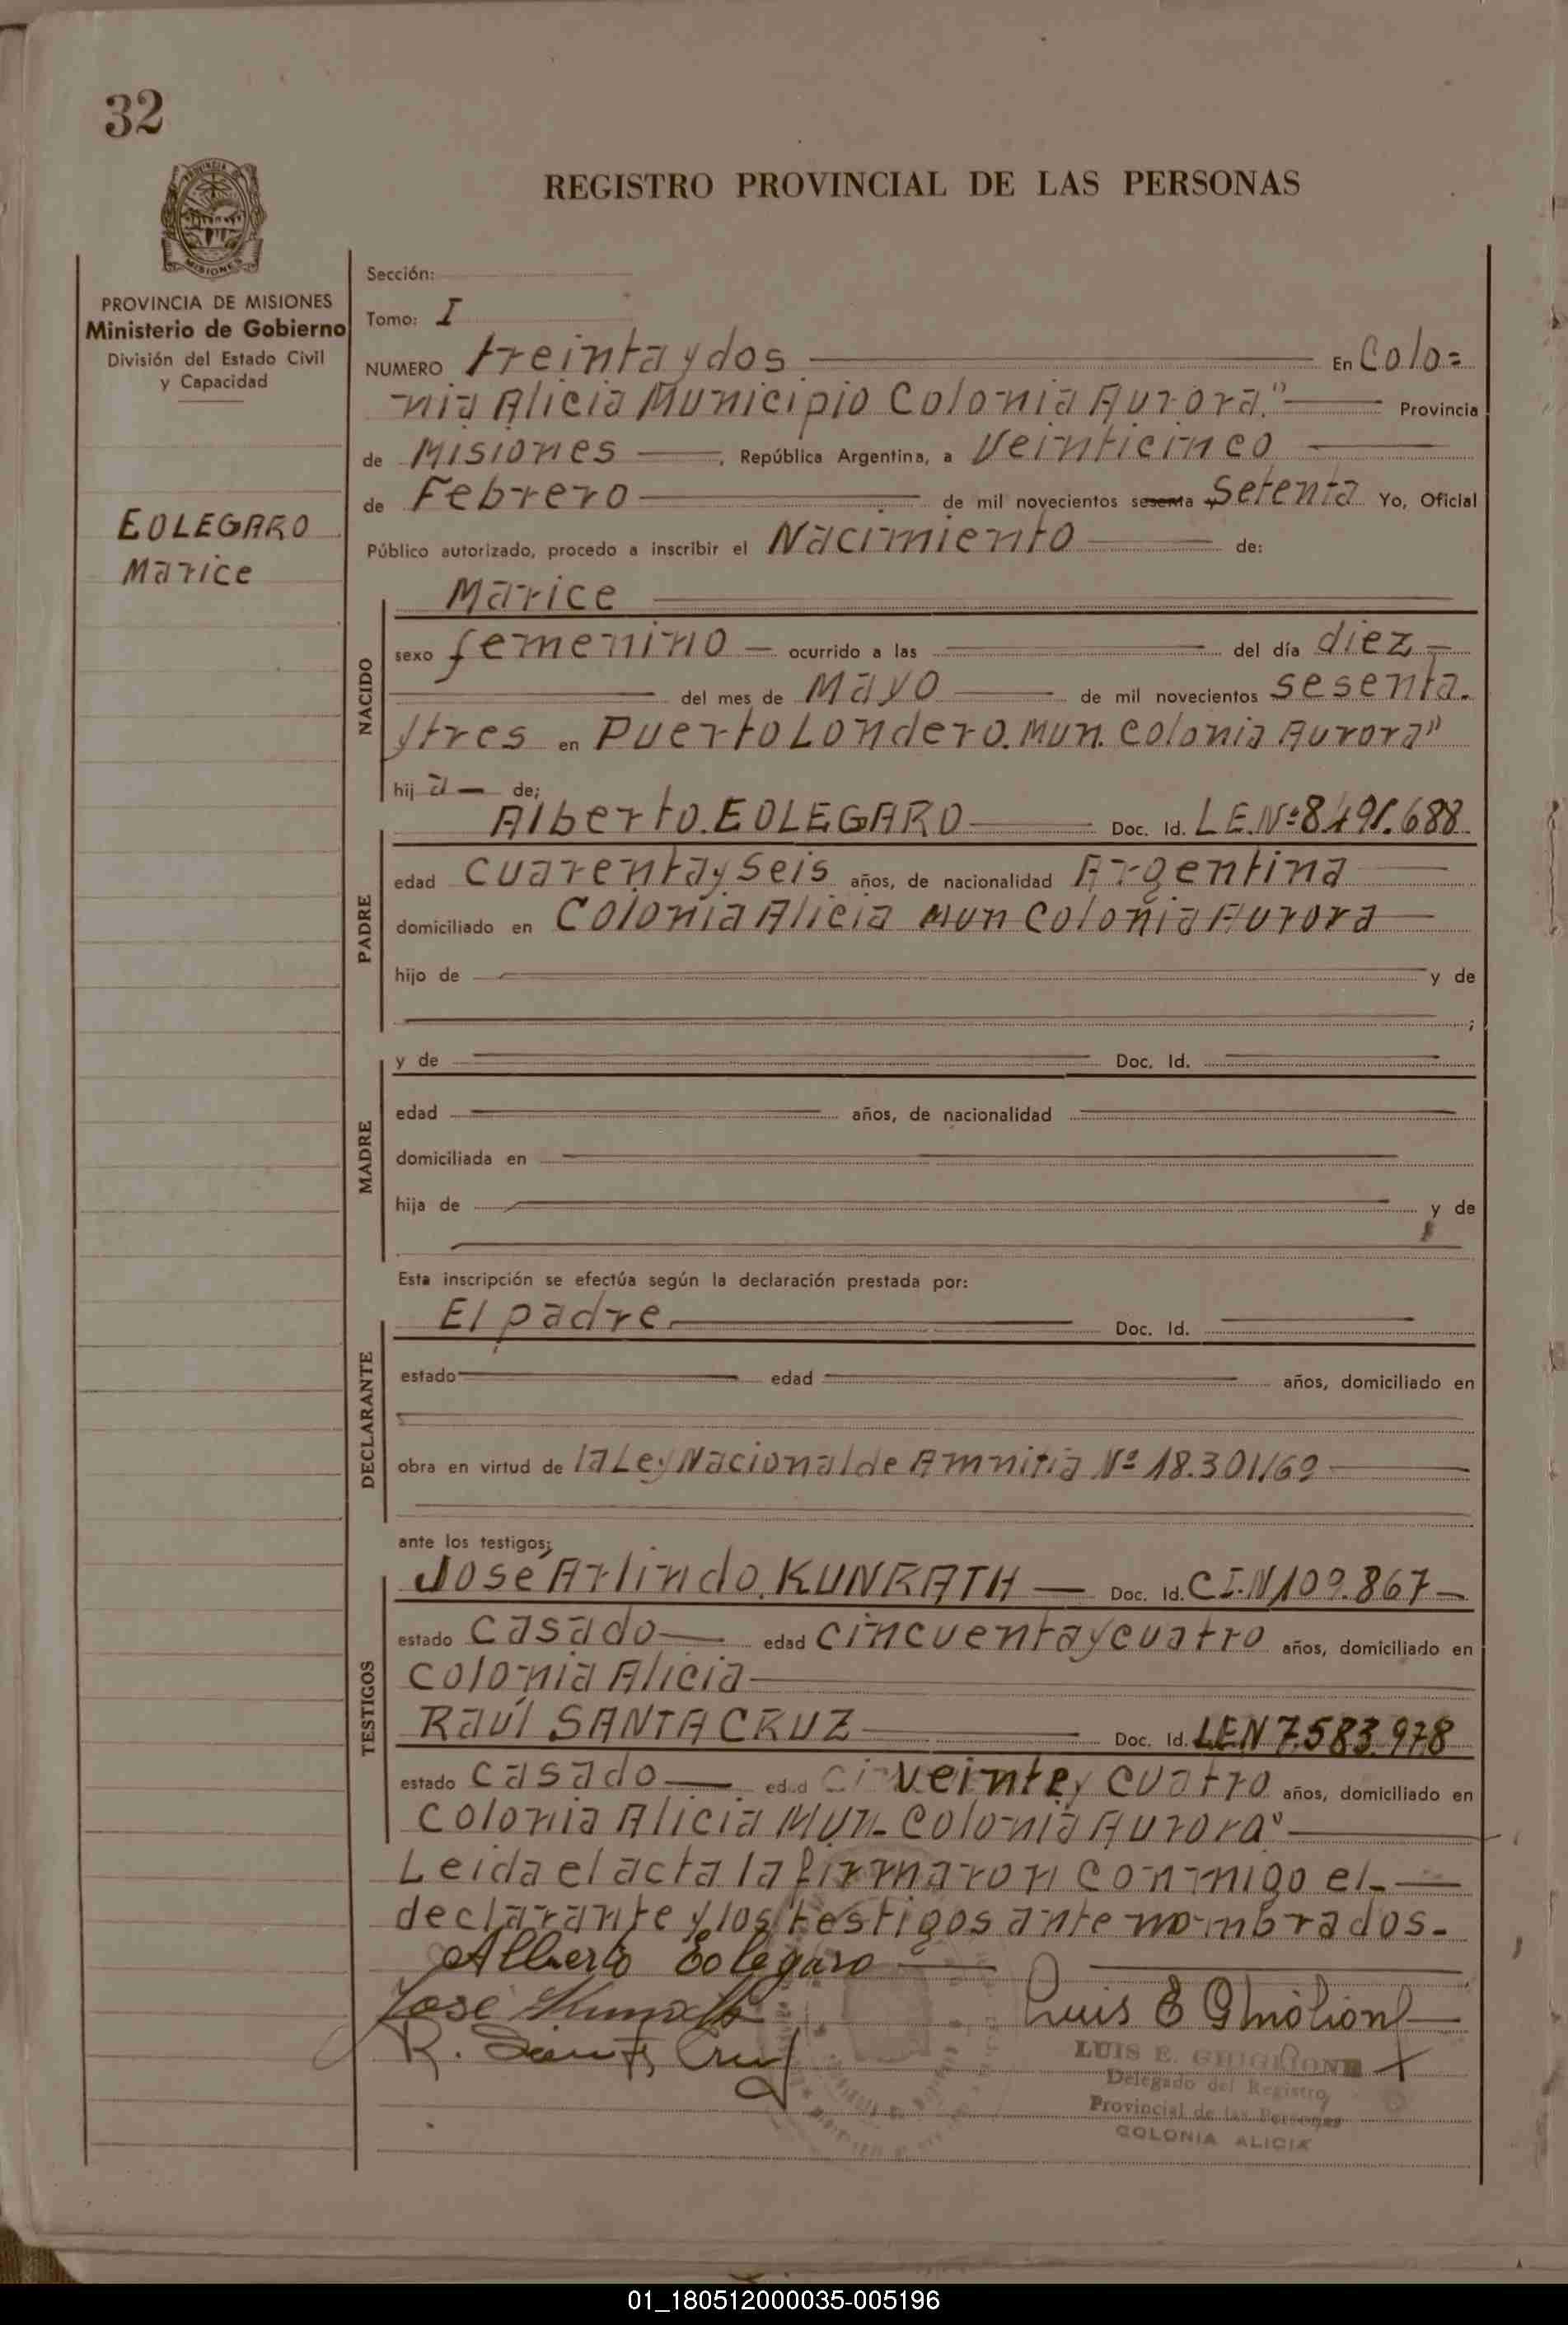 32
REGISTRO PROVINCIAL DE LAS PERSONAS
PROVINCIA DE MISIONES
Ministerio de Gobierno
División del Estado Civil
y Capacidad
EOLEGARO
Marice
Sección:
Tomo: I
NUMERO treinta y dos En Colo=
nia Alicia Municipio Colonia Aurora" Provincia
de Misiones, República Argentina, a Veinticinco
de Febrero de mil novecientos sesenta Setenta Yo, Oficial
Público autorizado, procedo a inscribir el Nacimiento de:
NACIDO
Marice
sexo femenino — ocurrido a las del día diez —
del mes de Mayo de mil novecientos sesenta.
ytres en Puerto Londero. Mun. Colonia Aurora"
hij a — de;
PADRE
Alberto. EOLEGARO Doc. Id. L.E.Nº 8.491.688
edad cuarenta y seis años, de nacionalidad Argentina
domiciliado en Colonia Alicia Mun Colonia Aurora
hijo de y de
;
MADRE
y de Doc. Id.
edad años, de nacionalidad
domiciliada en
hija de y de
Esta inscripción se efectúa según la declaración prestada por:
DECLARANTE
El padre Doc. Id.
estado edad años, domiciliado en
obra en virtud de la Ley Nacional de Amnitia Nº 18.301/69
ante los testigos;
TESTIGOS
José Arlindo. KUNRATH — Doc. Id. C.I.N 109.867 —
estado casado — edad cincuenta y cuatro años, domiciliado en
Colonia Alicia
Raúl SANTACRUZ Doc. Id. LEN 7.583.978
estado casado — edad veinte y cuatro años, domiciliado en
Colonia Alicia Mun. Colonia Aurora"
Leida el acta la firmaron conmigo el —
declarante y los testigos ante nombrados.
Alberto Eolegaro
José Kunrath
R. Santa Cruz
Luis E Ghiglione
LUIS E. GHIGLIONE
Delegado del Registro
Provincial de las Personas
COLONIA ALICIA
01_180512000035-005196